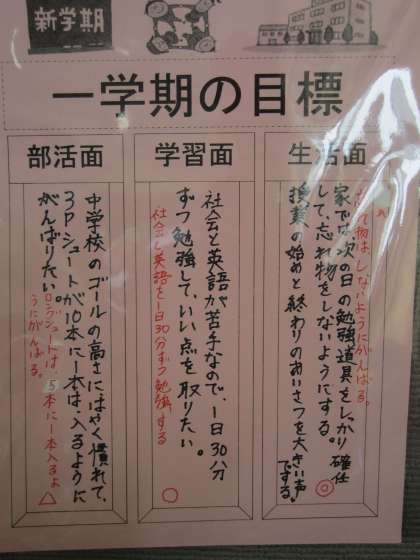 新学期
一学期の目標
生活面
忘れ物はしないようにがんばる。
家では、次の日の勉強道具をしっかり確任
して、忘れ物をしないようにする。
授業の始めと終わりのあいさつを大きい声
でする。
◎
学習面
社会と英語が苦手なので、一日30分
ずつ勉強して、いい点を取りたい。
社会と英語を一日30分ずつ勉強する
○
部活面
中学校のゴールの高さにはやく慣れて、
3Pシュートが10本に一本は、入るように
がんばりたい。
ロングシュートは、5本に一本入るよ
うにがんばる。
△